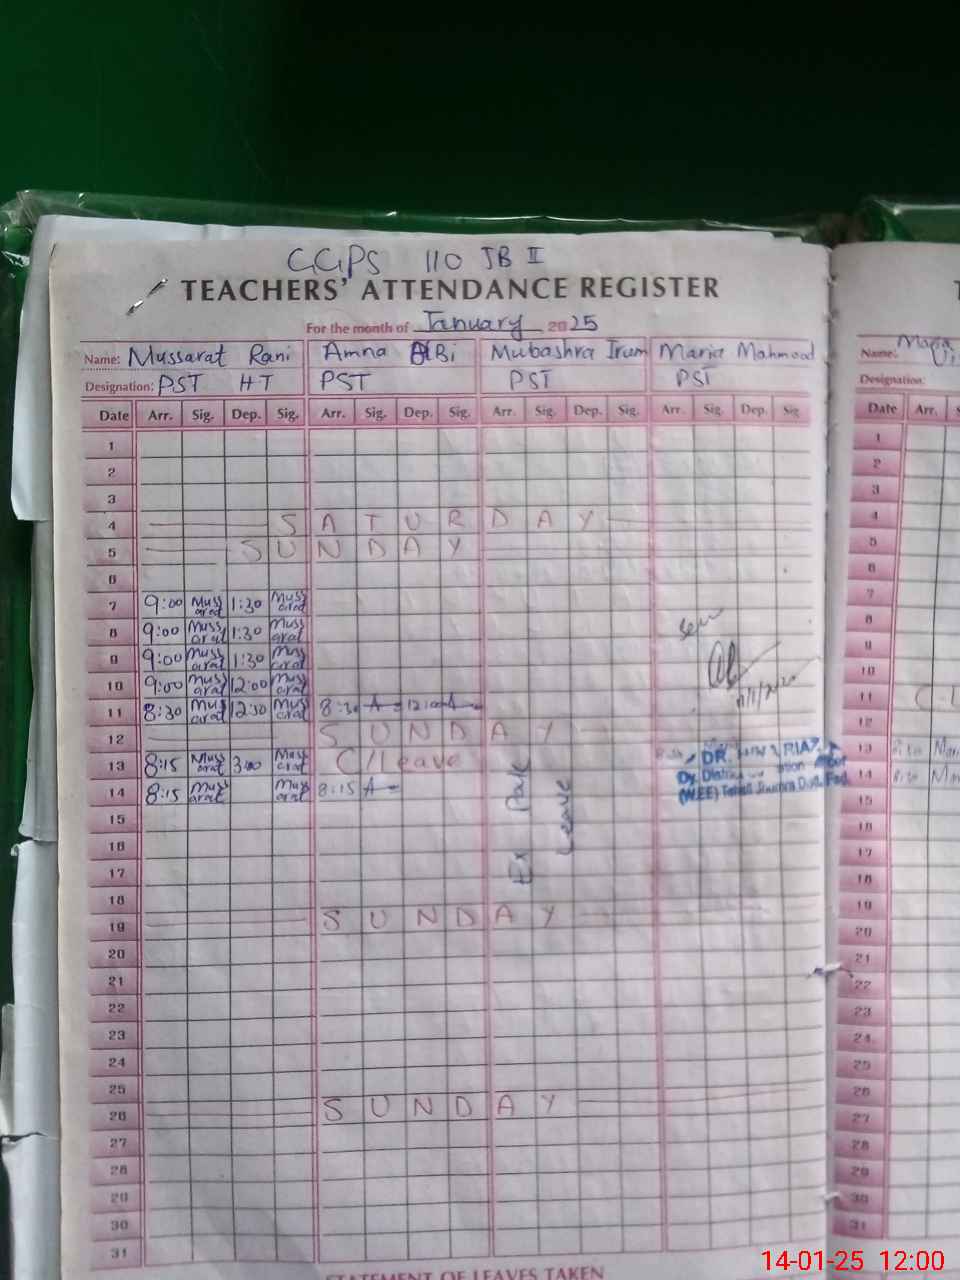 GGPS 110 JB II
TEACHERS' ATTENDANCE REGISTER
For the month of January 2025
Name: Mussarat Rani Amna BiBi Mubashra Irum Maria Mahmood
Designation: PST HT PST PST PST
Date Arr. Sig. Dep. Sig. Arr. Sig. Dep. Sig. Arr. Sig. Dep. Sig. Arr. Sig. Dep. Sig.
1
2
3
4 SATURDAY
5 SUNDAY
6
7 9:00 Mussarat 1:30 Mussarat
8 9:00 Mussarat 1:30 Mussarat
9 9:00 Mussarat 1:30 Mussarat
10 9:00 Mussarat 12:00 Mussarat
11 8:30 Mussarat 12:30 Mussarat 8:30 A
12 SUNDAY
13 8:15 Mussarat 3:00 Mussarat C/Leave
14 8:15 Mussarat Mussarat 8:15 A
15
16
17
18
19 SUNDAY
20
21
22
23
24
25
26 SUNDAY
27
28
29
30
31
Ex Pak
Leave
DR. RIAZ
Dy. District
(W.EE) Tehsil Jhumra Distt. Fsd.
STATEMENT OF LEAVES TAKEN
Name: Maria
Designation:
Date Arr.
1
2
3
4
5
6
7
8
9
10
11
12
13
14
15
16
17
18
19
20
21
22
23
24
25
26
27
28
29
30
31
14-01-25 12:00